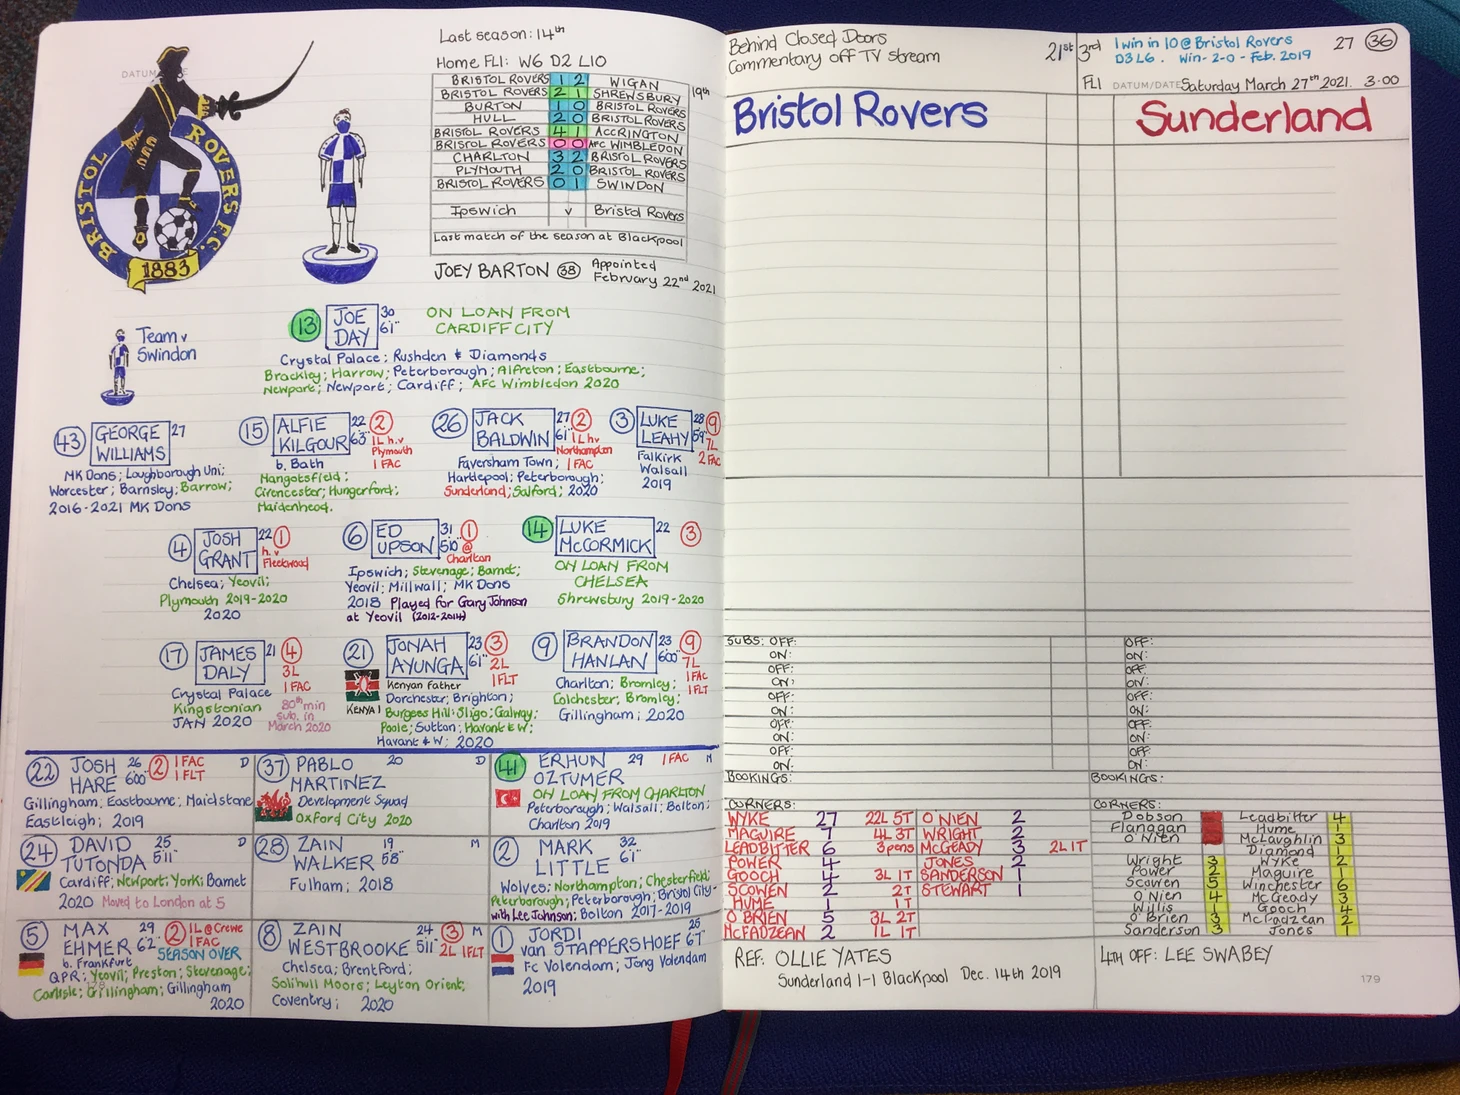 Last season: 14th
Home FL1: W6 D2 L10
BRISTOL ROVERS 1 2 WIGAN
BRISTOL ROVERS 2 1 SHREWSBURY 19th
BURTON 1 0 BRISTOL ROVERS
HULL 2 0 BRISTOL ROVERS
BRISTOL ROVERS 4 1 ACCRINGTON
BRISTOL ROVERS 0 0 AFC WIMBLEDON
CHARLTON 3 2 BRISTOL ROVERS
PLYMOUTH 2 0 BRISTOL ROVERS
BRISTOL ROVERS 0 1 SWINDON
Ipswich v Bristol Rovers
Last match of the season at Blackpool
JOEY BARTON 38 Appointed
February 22nd 2021
BRISTOL ROVERS F.C.
1883
Team v
Swindon
13 JOE DAY 30 6'1"
ON LOAN FROM
CARDIFF CITY
Crystal Palace; Rushden & Diamonds
Brackley; Harrow; Peterborough; Alfreton; Eastbourne;
Newport; Newport; Cardiff; AFC Wimbledon 2020
43 GEORGE WILLIAMS 27
MK Dons; Loughborough Uni;
Worcester; Barnsley; Barrow;
2016-2021 MK Dons
15 ALFIE KILGOUR 22 6'3" 2
1L h.v
Plymouth
1 FAC
b. Bath
Mangotsfield;
Cirencester; Hungerford;
Maidenhead.
26 JACK BALDWIN 27 6'1" 2
1L h.v
Northampton
1 FAC
Faversham Town;
Hartlepool; Peterborough;
Sunderland; Salford; 2020
3 LUKE LEAHY 28 5'9" 9
7L
2 FAC
Falkirk
Walsall
2019
4 JOSH GRANT 22 1
h.v
Fleetwood
Chelsea; Yeovil;
Plymouth 2019-2020
2020
6 ED UPSON 31 5'10" 1
@
Charlton
Ipswich; Stevenage; Barnet;
Yeovil; Millwall; MK Dons
2018 Played for Gary Johnson
at Yeovil (2012-2014)
14 LUKE McCORMICK 22 3
ON LOAN FROM
CHELSEA
Shrewsbury 2019-2020
17 JAMES DALY 21 4
3L
1 FAC
Crystal Palace
Kingstonian
JAN 2020
80th min
sub. in
March 2020
21 JONAH AYUNGA 23 6'1" 3
2L
1FLT
KENYA 1
Kenyan father
Dorchester; Brighton;
Burgess Hill; Sligo; Galway;
Poole; Sutton; Havant & W;
Havant & W; 2020
9 BRANDON HANLAN 23 6'00" 9
7L
1FAC
1FLT
Charlton; Bromley;
Colchester; Bromley;
Gillingham; 2020
22 JOSH HARE 26 6'00" 2 1 FAC 1 FLT D
Gillingham; Eastbourne; Maidstone
Eastleigh; 2019
37 PABLO MARTINEZ 20 D
Development Squad
Oxford City 2020
41 ERHUN OZTUMER 29 1 FAC M
ON LOAN FROM CHARLTON
Peterborough; Walsall; Bolton;
Charlton 2019
24 DAVID TUTONDA 25 5'11" D
Cardiff; Newport; York; Barnet
2020 Moved to London at 5
28 ZAIN WALKER 19 5'8" M
Fulham; 2018
2 MARK LITTLE 32 6'1"
Wolves; Northampton; Chesterfield;
Peterborough; Peterborough; Bristol City-
with Lee Johnson; Bolton 2017-2019
5 MAX EHMER 29 6'2" 2 1L @ Crewe
1 FAC
b. Frankfurt SEASON OVER
QPR; Yeovil; Preston; Stevenage;
Carlisle; Gillingham; Gillingham
2020
8 ZAIN WESTBROOKE 24 5'11" 3 M
2L 1FLT
Chelsea; Brentford;
Solihull Moors; Leyton Orient;
Coventry; 2020
1 JORDI van STAPPERSHOEF 25 6'7"
FC Volendam; Jong Volendam
2019
Behind Closed Doors
Commentary off TV stream
21st 3rd
1 win in 10 @ Bristol Rovers
D3 L6. Win- 2-0 - Feb. 2019
27 36
FL1 DATUM/DATE Saturday March 27th 2021. 3-00
Bristol Rovers
Sunderland
SUBS: OFF: OFF:
ON: ON:
OFF: OFF
ON: ON:
OFF: OFF:
ON: ON:
OFF: OFF:
ON: ON:
OFF: OFF:
ON: ON:
BOOKINGS: BOOKINGS:
CORNERS:
WYKE 27 22L 5T O NIEN 2
MAGUIRE 7 4L 3T WRIGHT 2
LEADBITTER 6 3pens McGEADY 3 2L 1T
POWER 4 JONES 2
GOOCH 4 3L 1T SANDERSON 1
SCOWEN 2 2T STEWART 1
HUME 1 1T
O BRIEN 5 3L 2T
McFADZEAN 2 1L 1T
CORNERS:
Dobson Leadbitter 4
Flanagan Hume 1
O Nien McLaughlin 3
Diamond 1
Wright 3 Wyke 2
Power 2 Maguire 1
Scowen 5 Winchester 6
O Nien 4 McGeady 3
Willis Gooch 4
O Brien 3 McFadzean 2
Sanderson 3 Jones 1
REF: OLLIE YATES
Sunderland 1-1 Blackpool Dec. 14th 2019
4TH OFF: LEE SWABEY
179